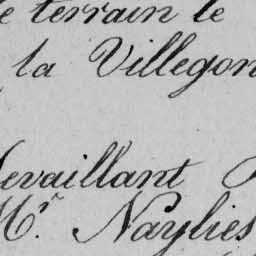 e terrain le
la Villegon
evaillant
Mr. Naylies